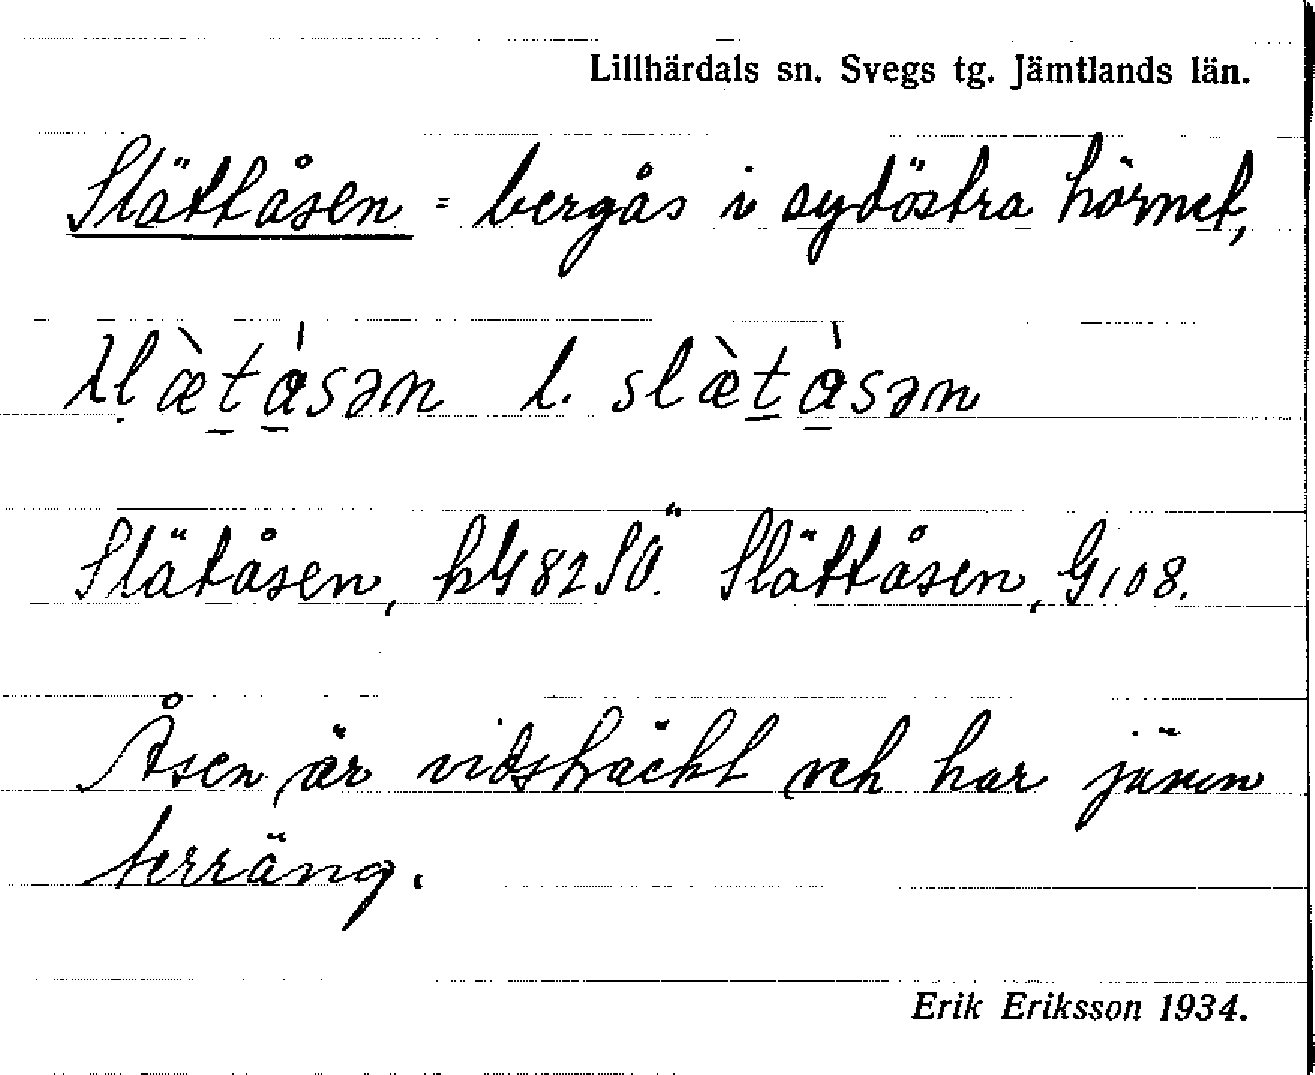 Lillhärdals sn. Svegs tg. Jämtlands län.
Slättåsen = bergås i sydöstra hörnet,
l. slæ̀tåsən
Slätåsen, hH 82 SV. Slättåsen, G 108.
Åsen är vidsträckt och har jämn
terräng.
Erik Eriksson 1934.